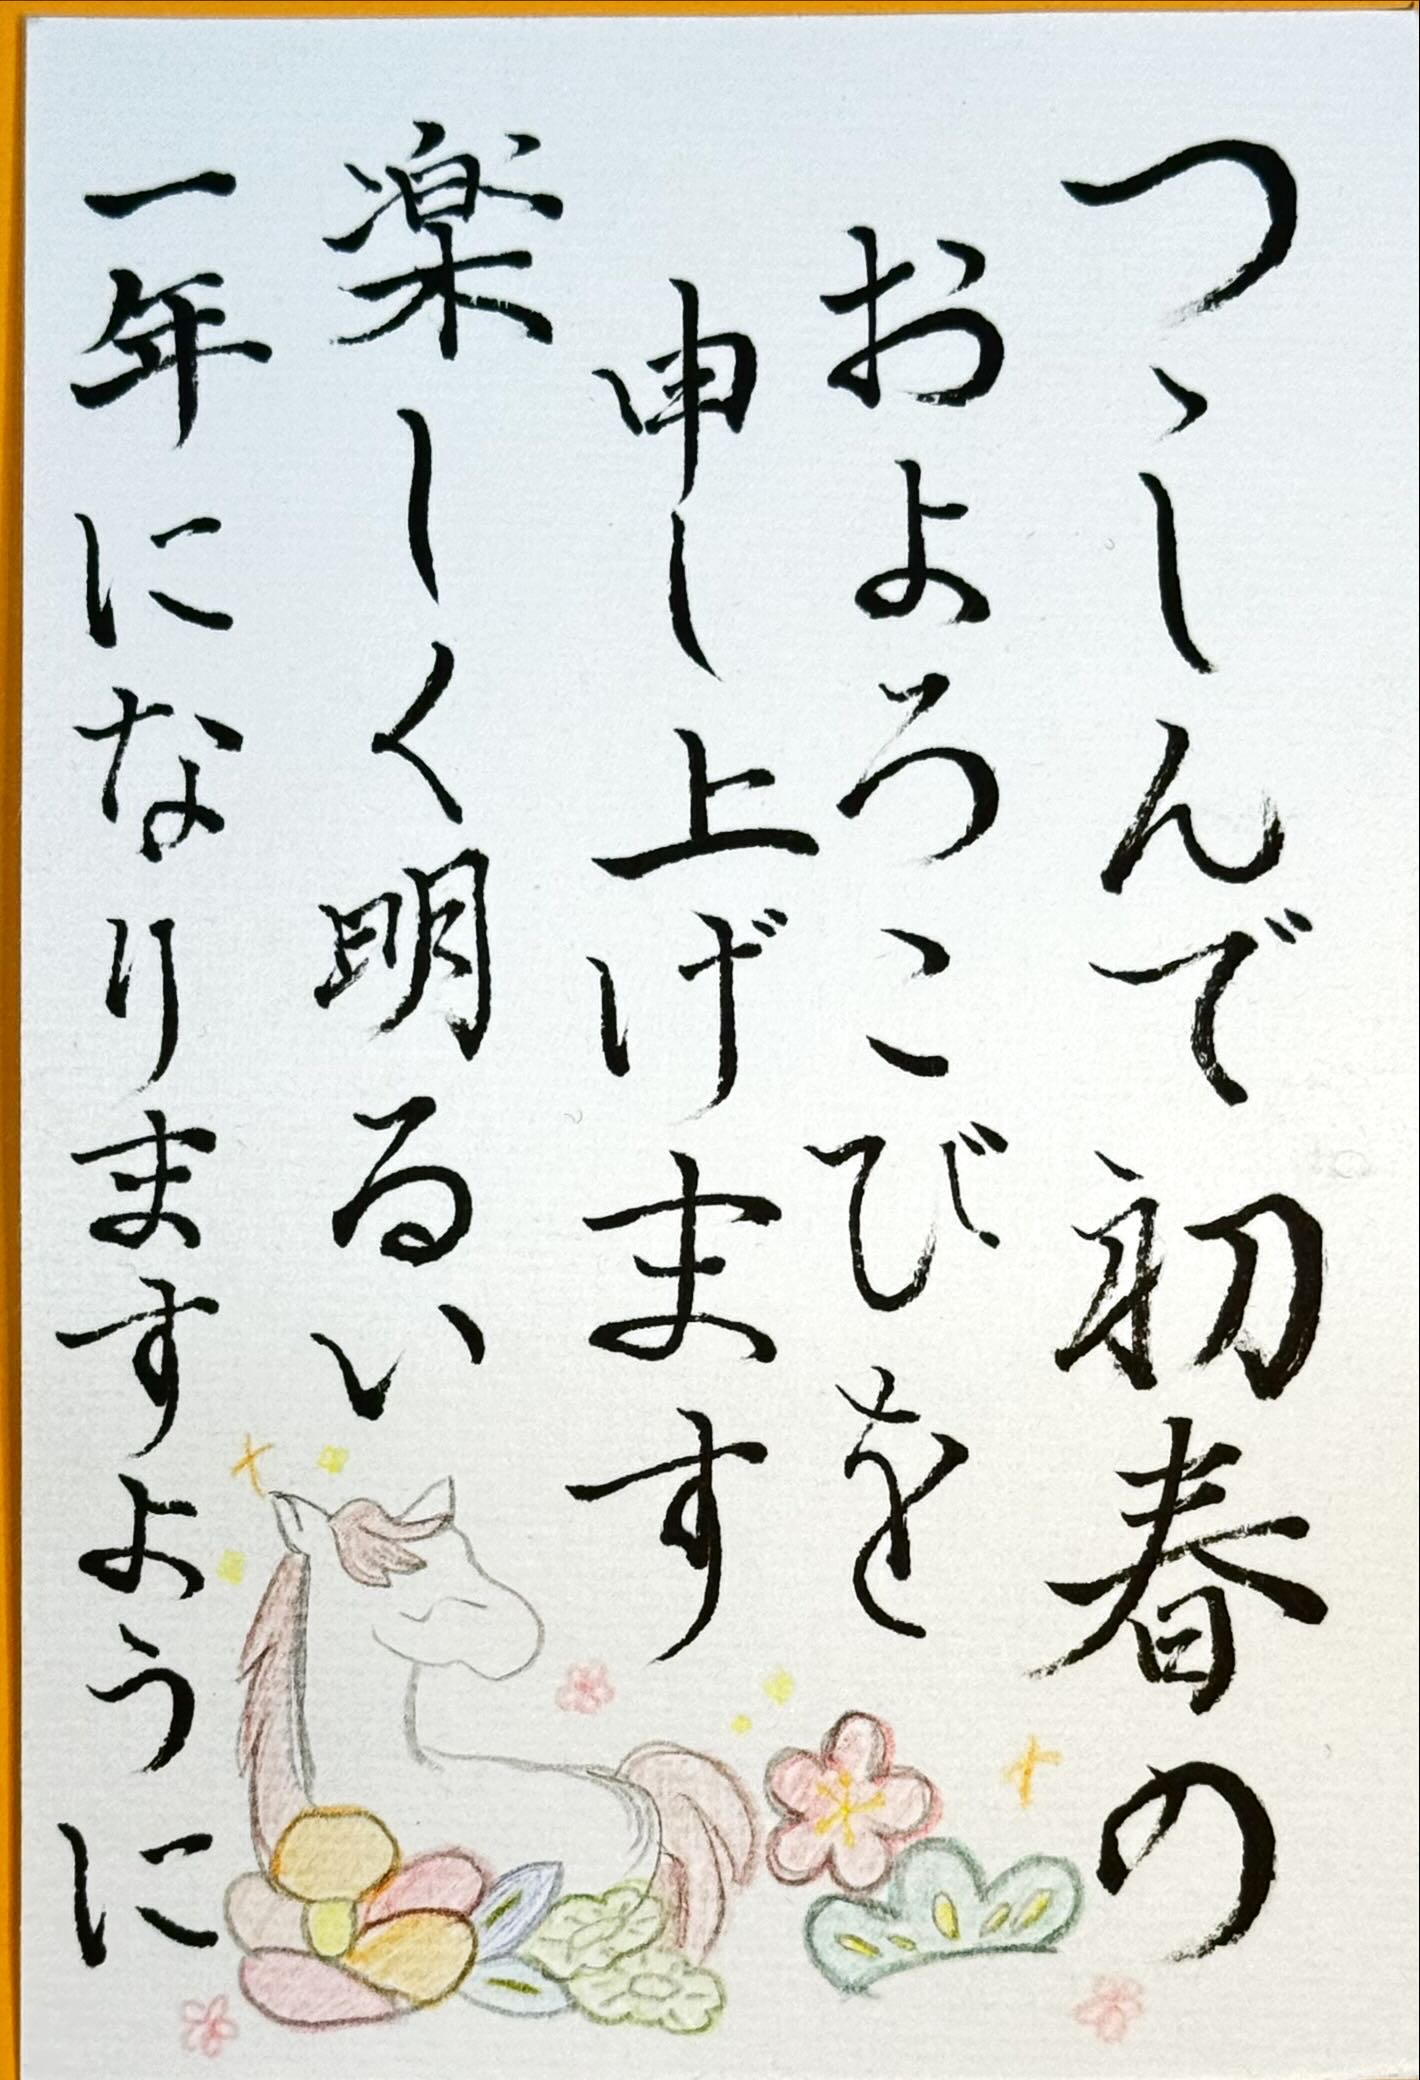 つゝしんで初春の
およろこびを
申し上げます
楽しく明るい
一年になりますように